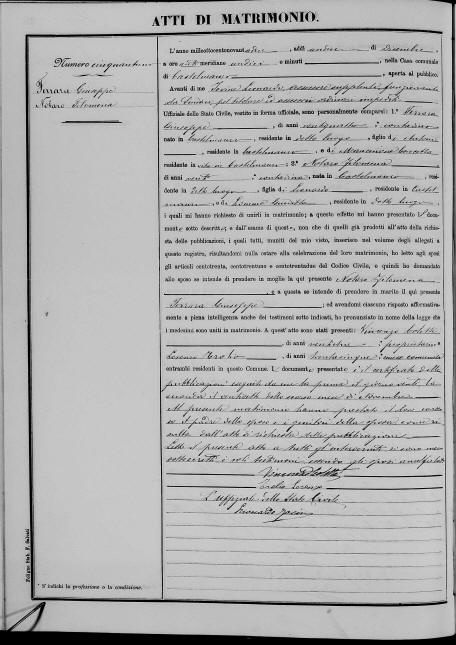 ATTI DI MATRIMONIO.
Numero cinquantuno
Ferrara Giuseppe
Notaro Filomena
L'anno millottocentonovantadue, addì undici di Dicembre
a ore antimeridiane undici e minuti, nella Casa comunale
di Castelmauro, aperta al pubblico.
Avanti di me Iacini Leonardo, assessore supplente funzionante
da Sindaco, pel titolare ed assessore ordinario impediti
Uffiziale dello Stato Civile, vestito in forma uffiziale, sono personalmente comparsi: 1.° Ferrara
Giuseppe, di anni ventiquattro, contadino
nato in Castelmauro, residente in detto luogo, figlio di
, residente in Castelmauro, e di
residente in vita in Castelmauro; 2.° Notaro Filomena
di anni venti, contadina, nata in Castelmauro, resi-
dente in detto luogo, figlia di Leonardo, residente in Castel-
mauro, e da, residente in detto luogo,
i quali mi hanno richiesto di unirli in matrimonio; a questo effetto mi hanno presentato il docu-
mento sotto descritto; e dall'esame di questo, non che di quelli già prodotti all'atto della richie-
sta delle pubblicazioni, i quali tutti, muniti del mio visto, inserisco nel volume degli allegati a
questo registro, risultandomi nulla ostare alla celebrazione del loro matrimonio, ho letto agli spo-
si gli articoli centotrenta, centotrentuno e centotrentadue del Codice Civile, e quindi ho domandato
allo sposo se intende di prendere in moglie la qui presente Notaro Filomena
, e a questa se intende di prendere in marito il qui presente
Ferrara Giuseppe; ed avendomi ciascuno risposto affermativamente
a piena intelligenza anche dei testimoni sotto indicati, ho pronunziato in nome della legge che
i medesimi sono uniti in matrimonio. A quest'atto sono stati presenti: Vincenzo
, di anni ventotto, proprietario
Lorenzo, di anni trentacinque, comunale
entrambi residenti in questo Comune. Il documento presentato è il certificato delle
pubblicazioni eseguite da me la prima il giorno venti, la
seconda il ventisette dello scorso mese di Novembre.
Al presente matrimonio hanno prestato il loro consen-
so il padre dello sposo e i genitori della sposa come ri-
sulta dall'atto di richiesta delle pubblicazioni.
Letto il presente atto a tutti gl'intervenuti si sono meco
sottoscritti i soli testimoni essendo gli sposi analfabeti
Lorenzo
L'uffiziale dello Stato Civile
Leonardo Iacini
* S'indichi la professione o la condizione.